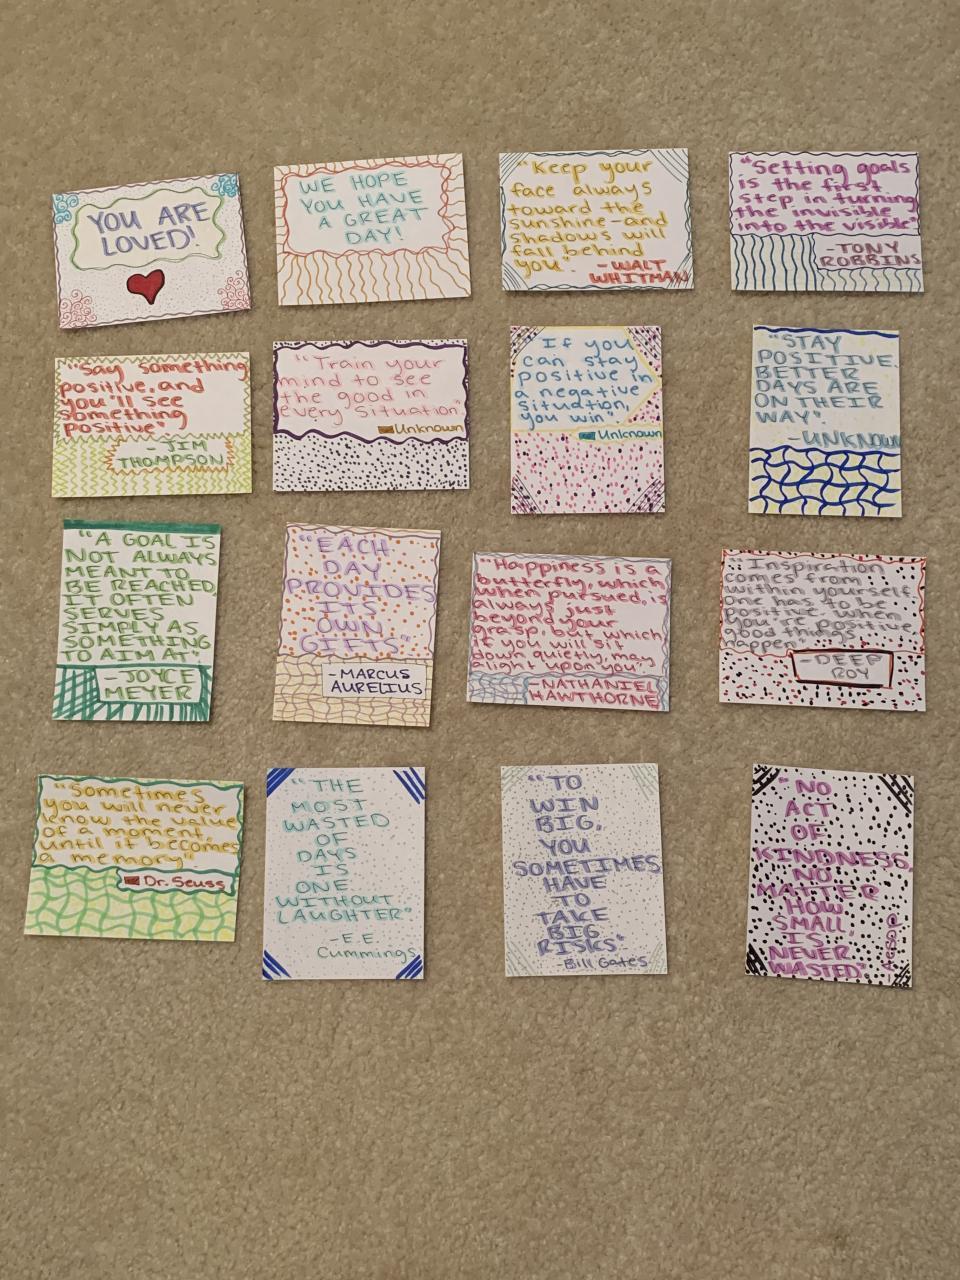 YOU ARE
LOVED!
WE HOPE
YOU HAVE
A GREAT
DAY!
"Keep your
face always
toward the
sunshine-and
shadows will
fall behind
you."
-WALT
WHITMAN
"Setting goals
is the first
step in turning
the invisible
into the visible"
-TONY
ROBBINS
"Say something
positive, and
you'll see
something
positive"
-JIM
THOMPSON
"Train your
mind to see
the good in
every situation"
-Unknown
"If you
can stay
positive in
a negative
situation,
you win".
-Unknown
"STAY
POSITIVE.
BETTER
DAYS ARE
ON THEIR
WAY".
-UNKNOWN
"A GOAL IS
NOT ALWAYS
MEANT TO
BE REACHED,
IT OFTEN
SERVES
SIMPLY AS
SOMETHING
TO AIM AT."
-JOYCE
MEYER
"EACH
DAY
PROVIDES
ITS
OWN
GIFTS"
-MARCUS
AURELIUS
"Happiness is a
butterfly, which
when pursued, is
always just
beyond your
grasp, but which
if you will sit
down quietly, may
alight upon you"
-NATHANIEL
HAWTHORNE
"Inspiration
comes from
within yourself.
one has to be
positive. when
you're positive
good things
happen."
-DEEP
ROY
"Sometimes
you will never
know the value
of a moment,
until it becomes
a memory".
Dr. Seuss
"THE
MOST
WASTED
OF
DAYS
IS
ONE
WITHOUT
LAUGHTER"
-E.E.
Cummings
"TO
WIN
BIG,
YOU
SOMETIMES
HAVE
TO
TAKE
BIG
RISKS"
-Bill Gates
"NO
ACT
OF
KINDNESS,
NO
MATTER
HOW
SMALL,
IS
NEVER
WASTED"
-AESOP